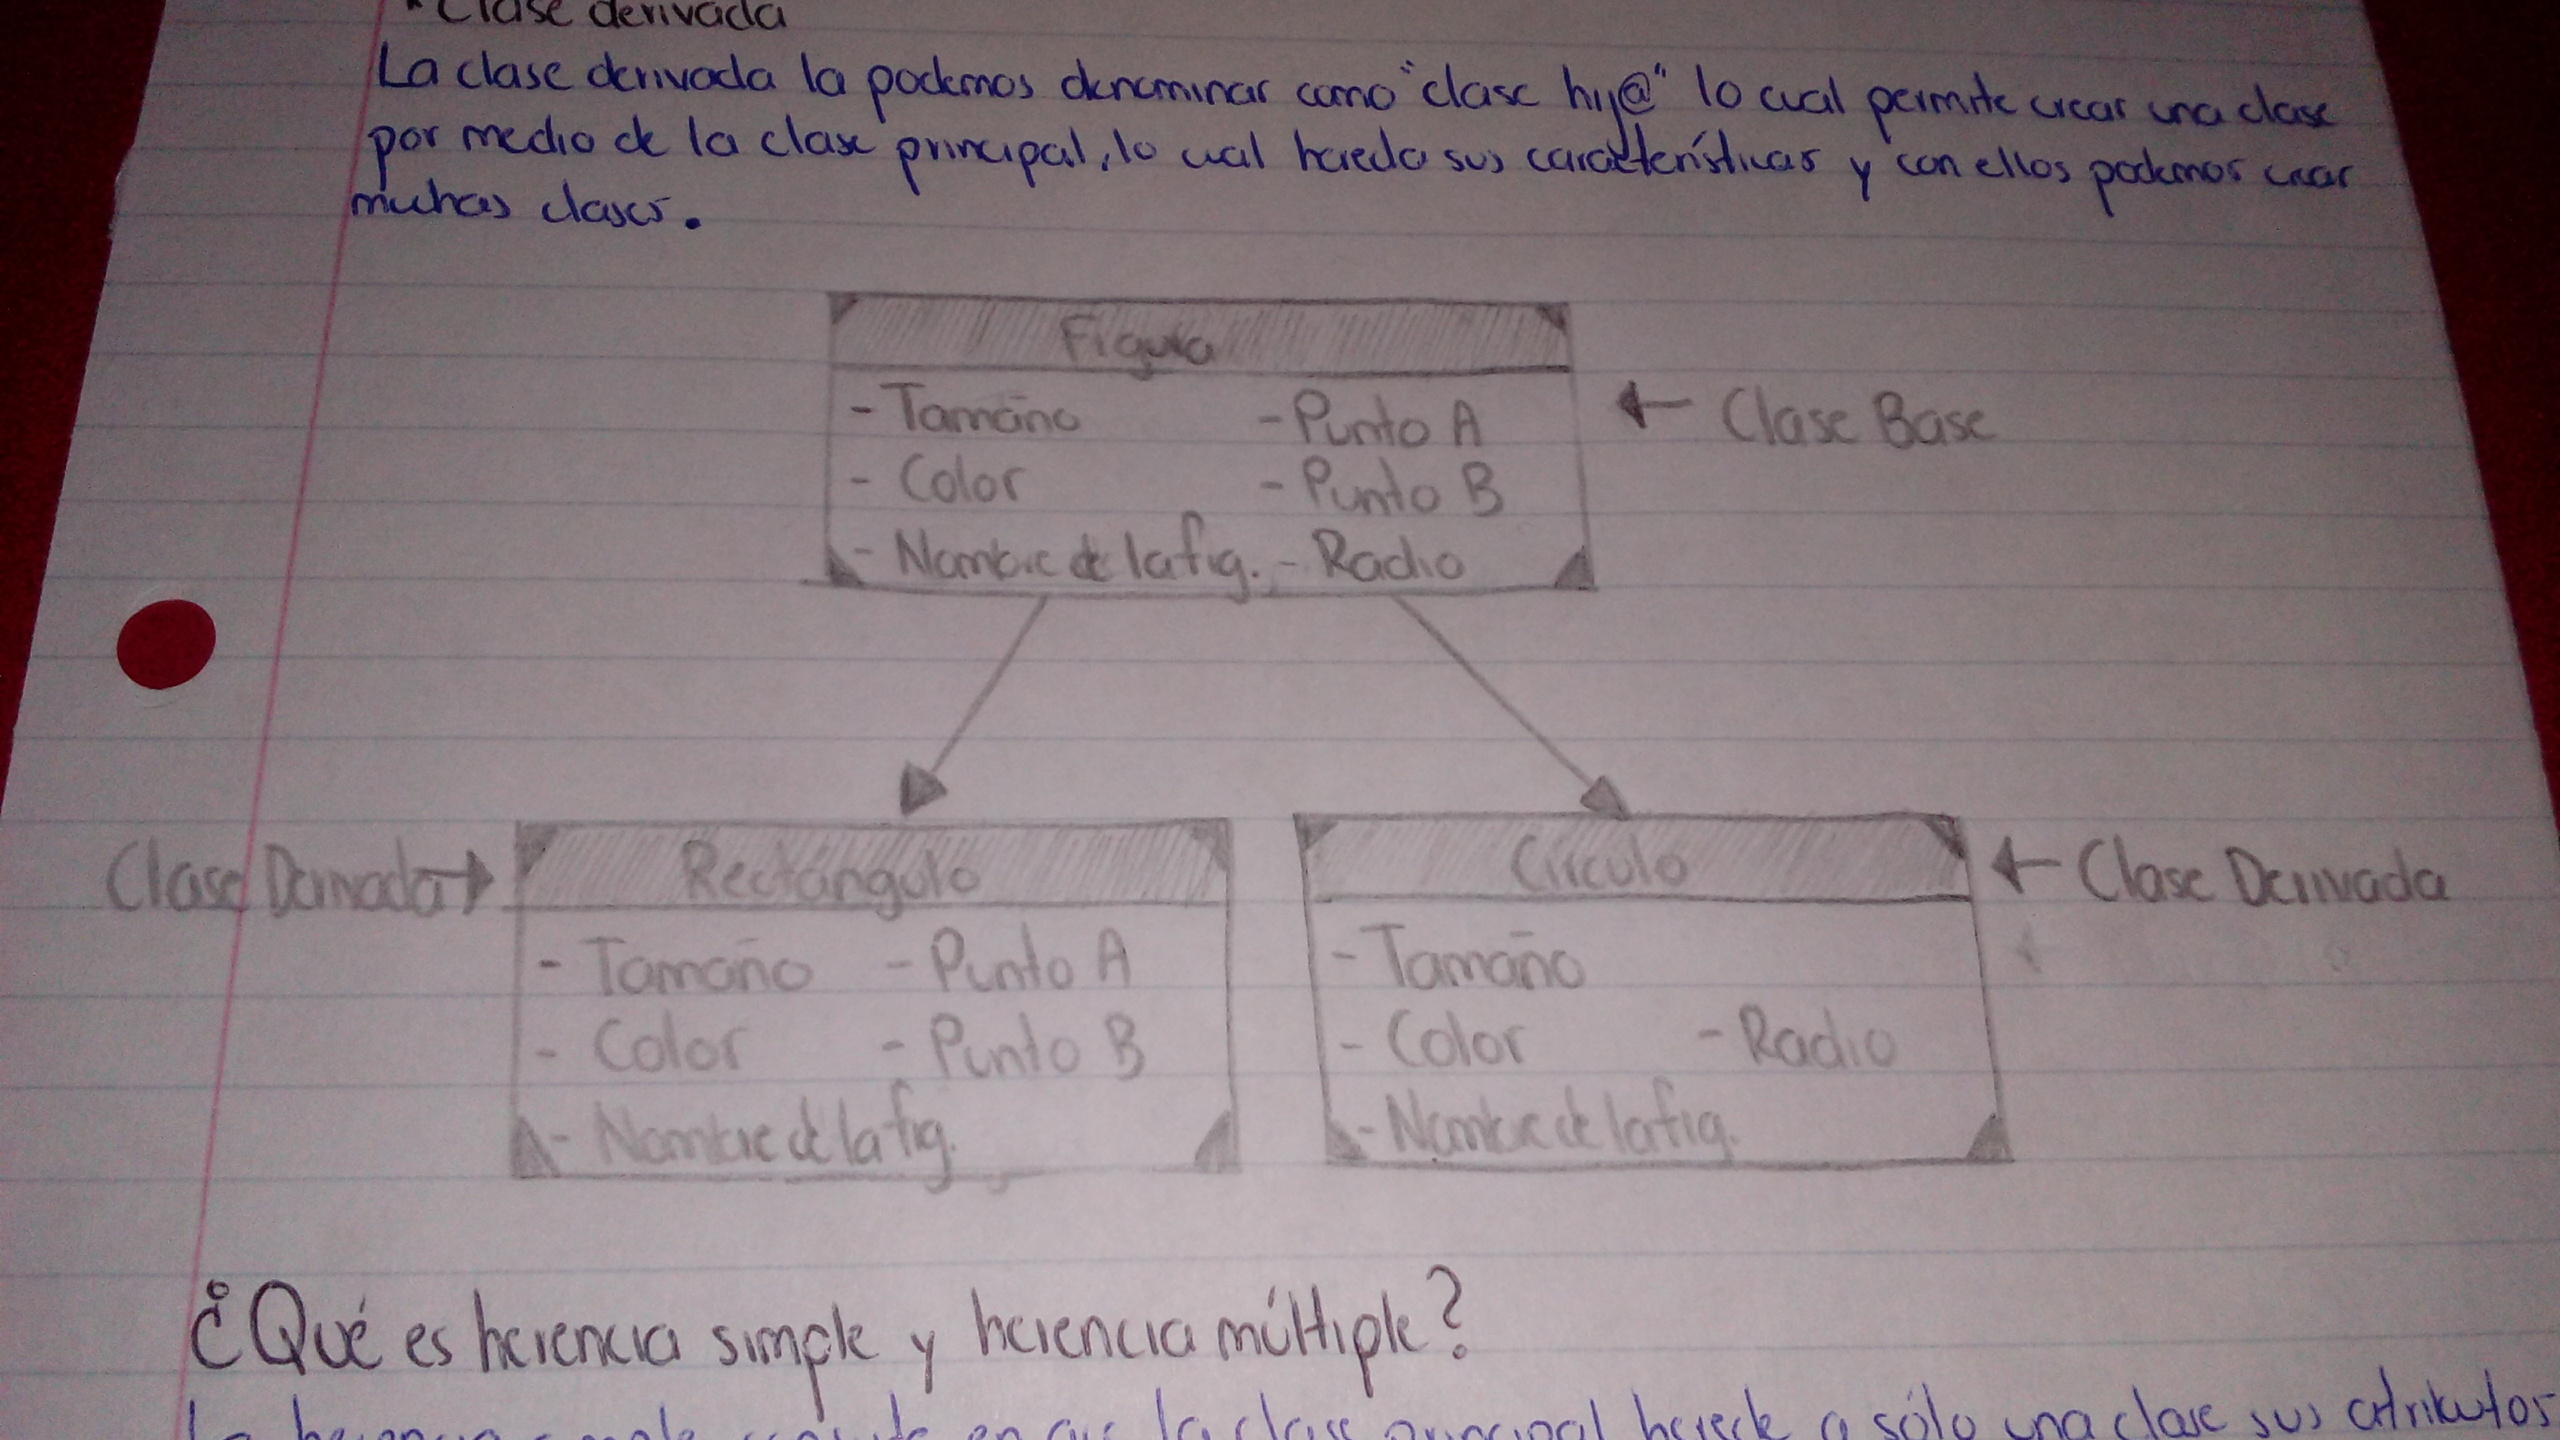 * Clase derivada
La clase derivada la podemos denominar como "clase hij@" lo cual permite crear una clase
por medio de la clase principal, lo cual hereda sus características y con ellos podemos crear
muchas clases.
Figura
- Tamaño - Punto A
← Clase Base
- Color - Punto B
- Nombre de la fig. - Radio
Clase Derivada →
Rectángulo
Círculo
← Clase Derivada
- Tamaño - Punto A
- Color - Punto B
- Nombre de la fig.
- Tamaño
- Color - Radio
- Nombre de la fig.
¿Qué es herencia simple y herencia múltiple?
La herencia simple consiste en que la clase principal herede a sólo una clase sus atributos